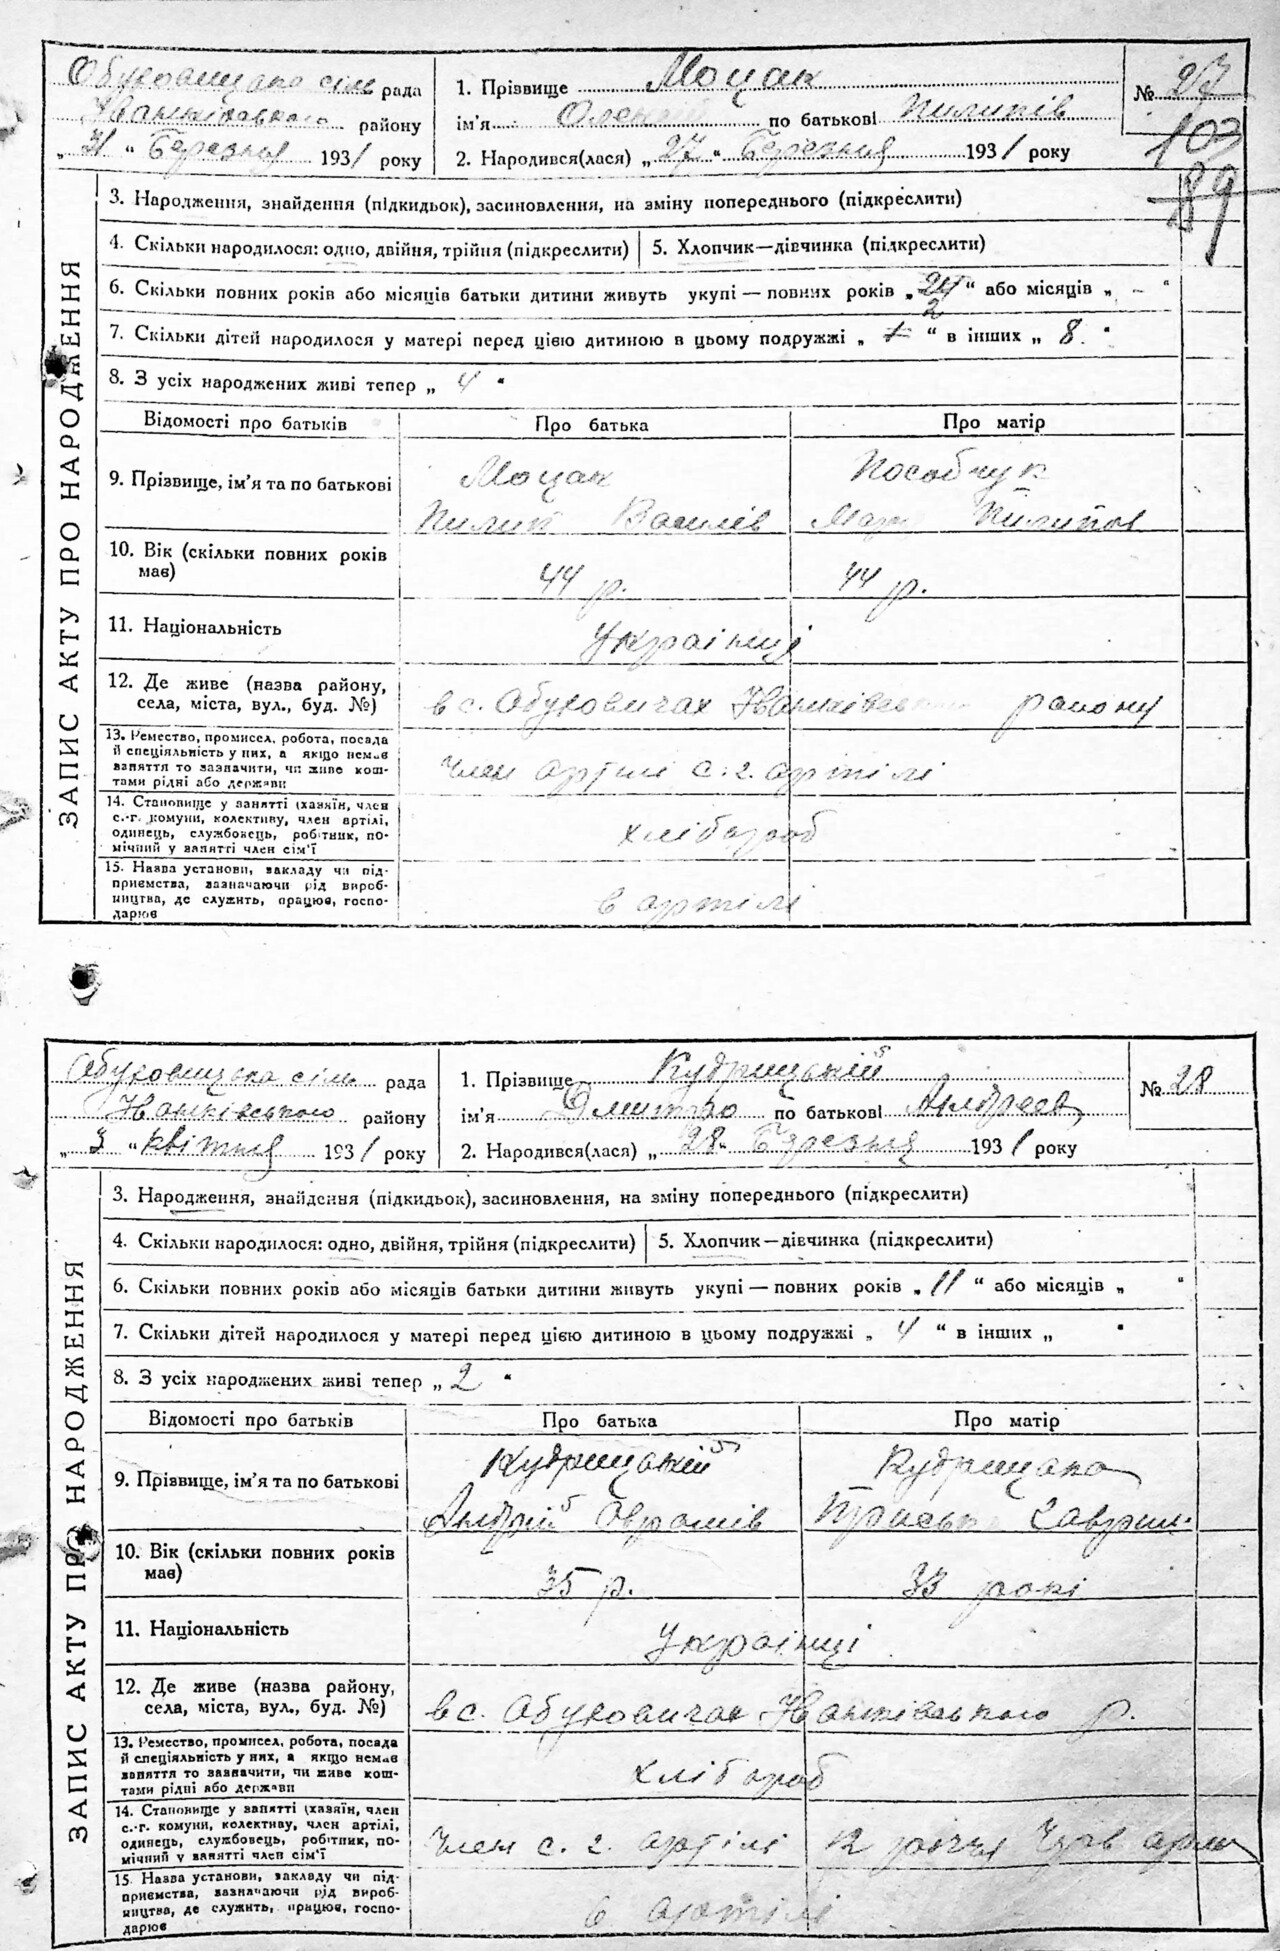 Обуховицька сіль рада
Іванківського району
„ 31 “ Березня 1931 року
1. Прізвище Моцак
ім'я Олексій по батькові Пилипів
2. Народився(лася) „ 27 “ Березня 1931 року
№ 27
103
89
ЗАПИС АКТУ ПРО НАРОДЖЕННЯ
3. Народження, знайдення (підкидьок), засиновлення, на зміну попереднього (підкреслити)
4. Скільки народилося: одно, двійня, трійня (підкреслити) 5. Хлопчик—дівчинка (підкреслити)
6. Скільки повних років або місяців батьки дитини живуть укупі — повних років „ 2 “ або місяців „ - “
7. Скільки дітей народилося у матері перед цією дитиною в цьому подружжі „ “ в інших „ 8 “
8. З усіх народжених живі тепер „ 4 “
Відомості про батьків Про батька Про матір
9. Прізвище, ім'я та по батькові
Моцак Пособчук
Пилип Василів Пилипов
10. Вік (скільки повних років має) 44 р. 44 р.
11. Національність Українці
12. Де живе (назва району, села, міста, вул., буд. №) в с. Обуховичах Іванківського району
13. Ремество, промисел, робота, посада й спеціяльність у них, а якщо немає заняття то зазначити, чи живе коштами рідні або держави
член артілі с. г. артілі
14. Становище у занятті (хазяїн, член с.-г. комуни, колективу, член артілі, одинець, службовець, робітник, помічний у занятті член сім'ї
хлібороб
15. Назва установи, закладу чи підприємства, зазначаючи рід виробництва, де служить, працює, господарює
в артілі
Обуховицька сіль рада
Іванківського району
„ 3 “ квітня 1931 року
1. Прізвище Кудрицький
ім'я Дмитро по батькові Андреєв
2. Народився(лася) „ 28 “ Березня 1931 року
№ 28
ЗАПИС АКТУ ПРО НАРОДЖЕННЯ
3. Народження, знайдення (підкидьок), засиновлення, на зміну попереднього (підкреслити)
4. Скільки народилося: одно, двійня, трійня (підкреслити) 5. Хлопчик—дівчинка (підкреслити)
6. Скільки повних років або місяців батьки дитини живуть укупі — повних років „ 11 “ або місяців „ “
7. Скільки дітей народилося у матері перед цією дитиною в цьому подружжі „ 4 “ в інших „ “
8. З усіх народжених живі тепер „ 2 “
Відомості про батьків Про батька Про матір
9. Прізвище, ім'я та по батькові
Кудрицький Кудрицька
Андрій Овромів Гаврил.
10. Вік (скільки повних років має) 35 р. 33 рокі
11. Національність Українці
12. Де живе (назва району, села, міста, вул., буд. №) в с. Обуховичах Іванківського р.
13. Ремество, промисел, робота, посада й спеціяльність у них, а якщо немає заняття то зазначити, чи живе коштами рідні або держави
хлібороб
14. Становище у занятті (хазяїн, член с.-г. комуни, колективу, член артілі, одинець, службовець, робітник, помічний у занятті член сім'ї
Член с. г. артілі
15. Назва установи, закладу чи підприємства, зазначаючи рід виробництва, де служить, працює, господарює
в артілі